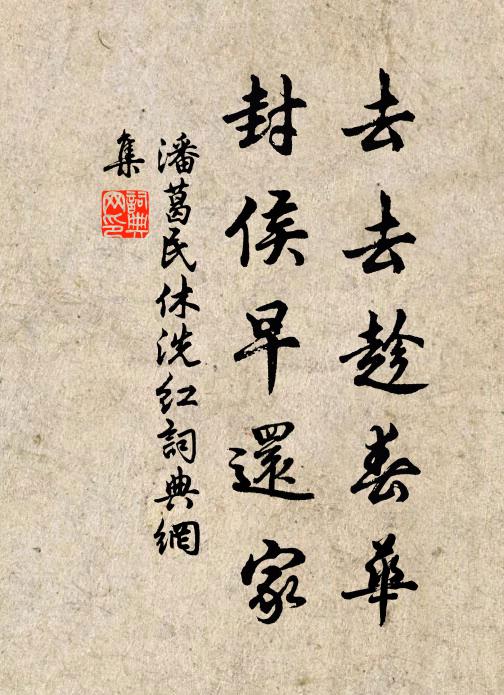 去去趁春華
封侯早還家
潘葛民休洗红詞典網
集
詞典
网印